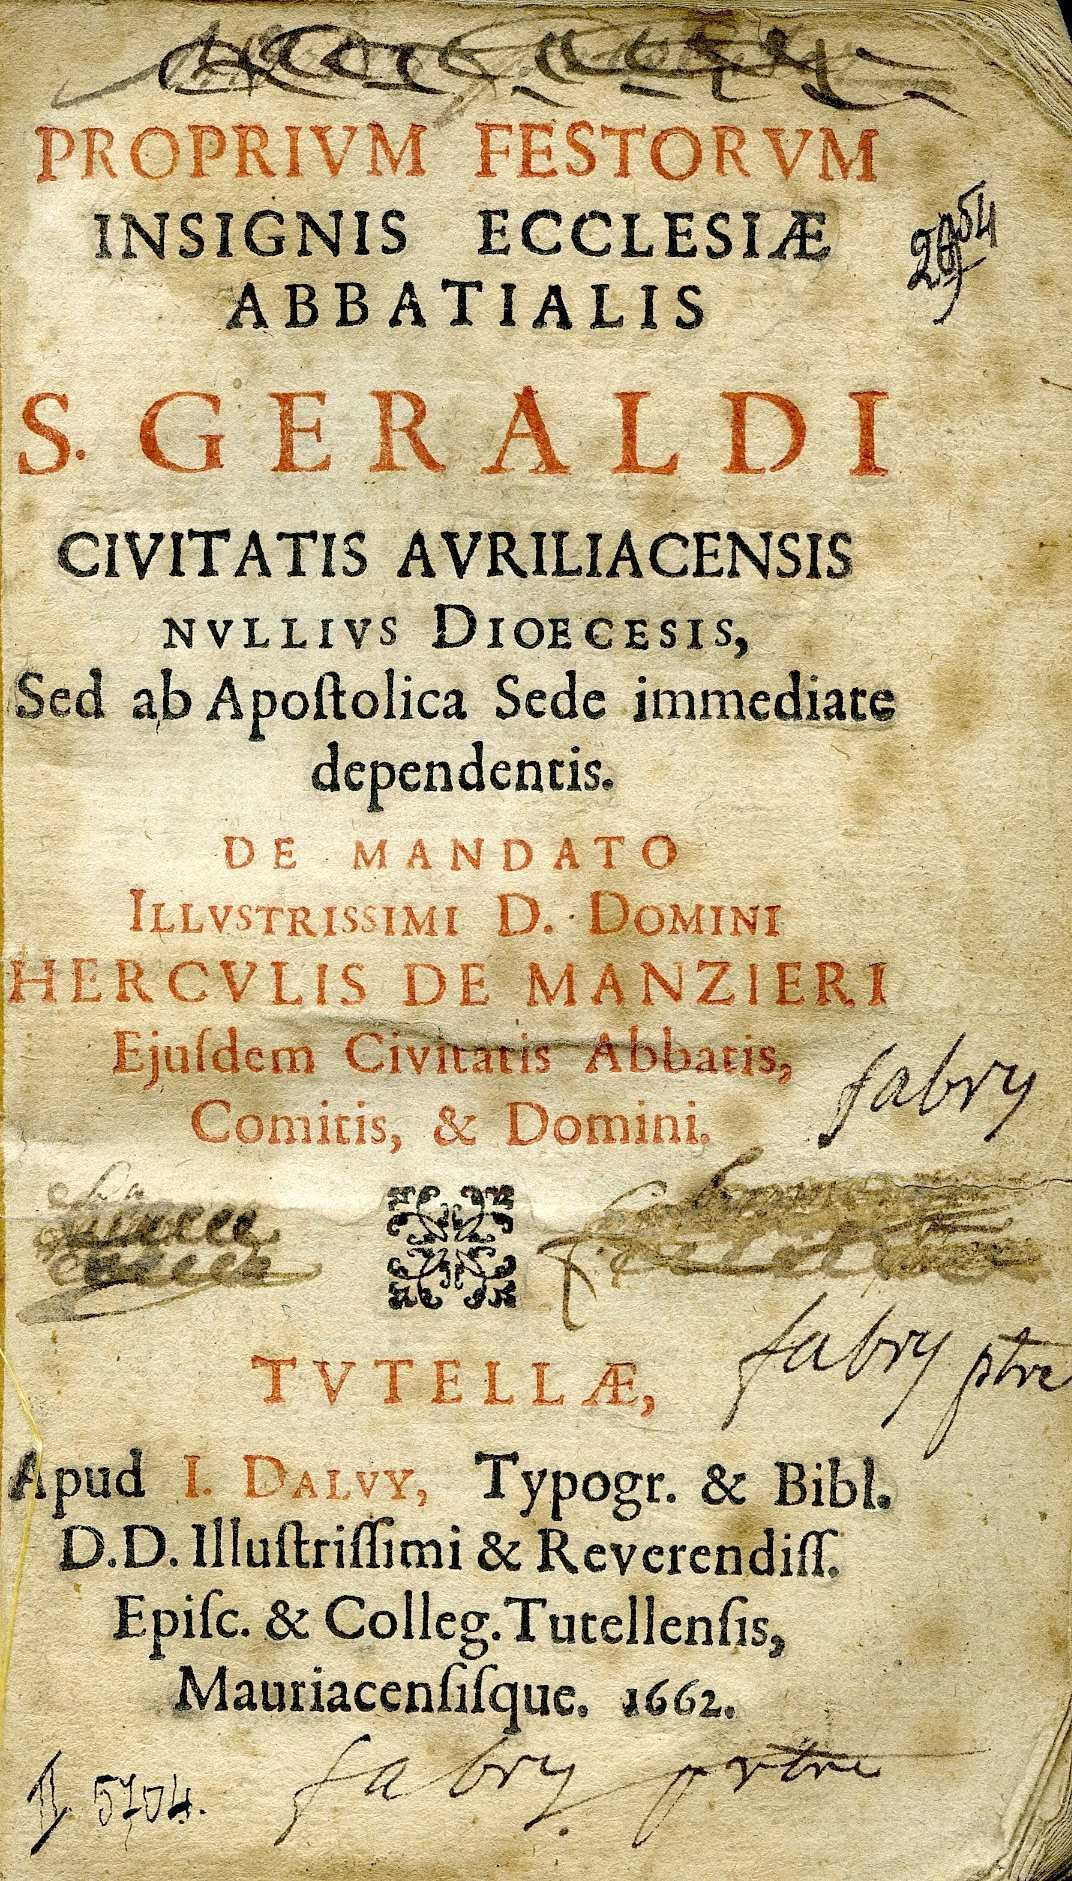 PROPRIVM FESTORVM
INSIGNIS ECCLESIÆ
ABBATIALIS
S. GERALDI
CIVITATIS AVRILIACENSIS
NVLLIVS DIOECESIS,
Sed ab Apoſtolica Sede immediate
dependentis.
DE MANDATO
ILLVSTRISSIMI D. DOMINI
HERCVLIS DE MANZIERI
Ejuſdem Civitatis Abbatis,
Comitis, & Domini.
fabry
TVTELLÆ,
fabry ptre
Apud I. DALVY, Typogr. & Bibl.
D.D. Illuſtriſſimi & Reverendiſſ.
Epiſc. & Colleg. Tutellenſis,
Mauriacenſiſque. 1662.
fabry prtre
5704.